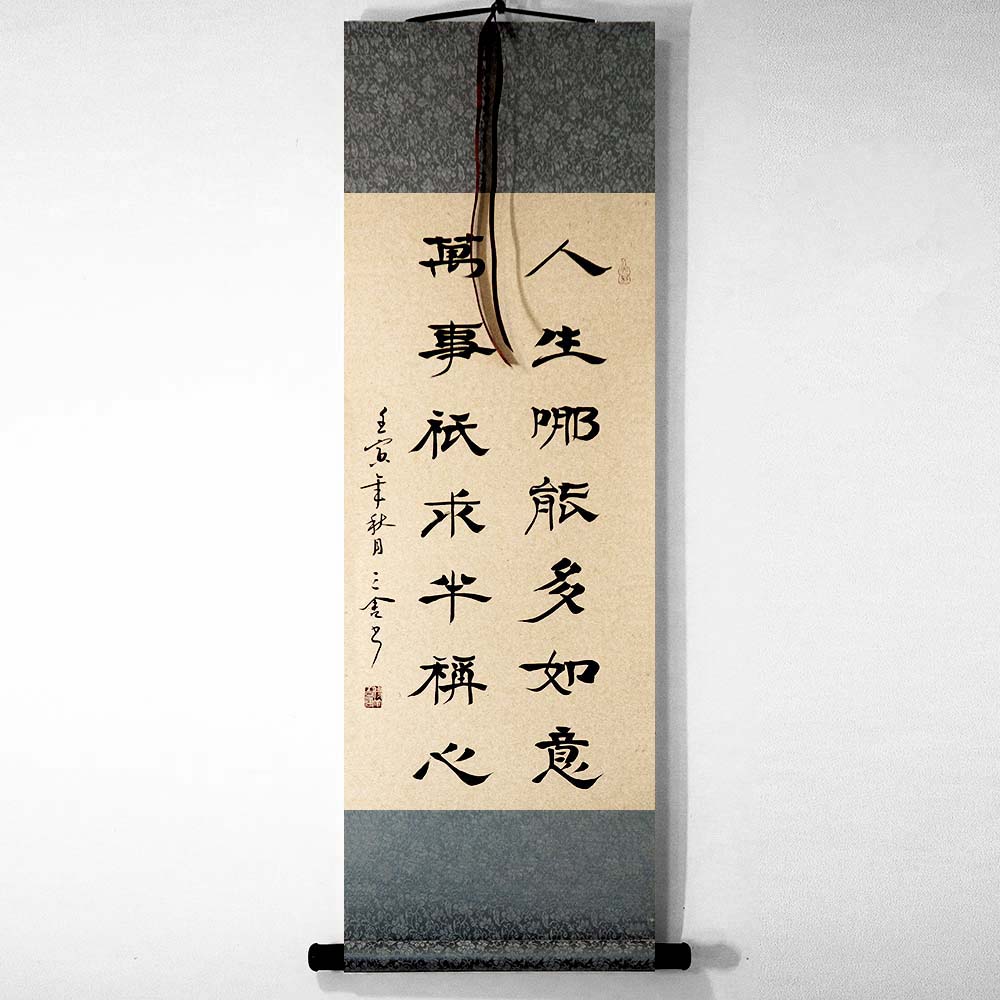 人生哪能多如意
萬事祇求半稱心
壬寅年秋月三舍書